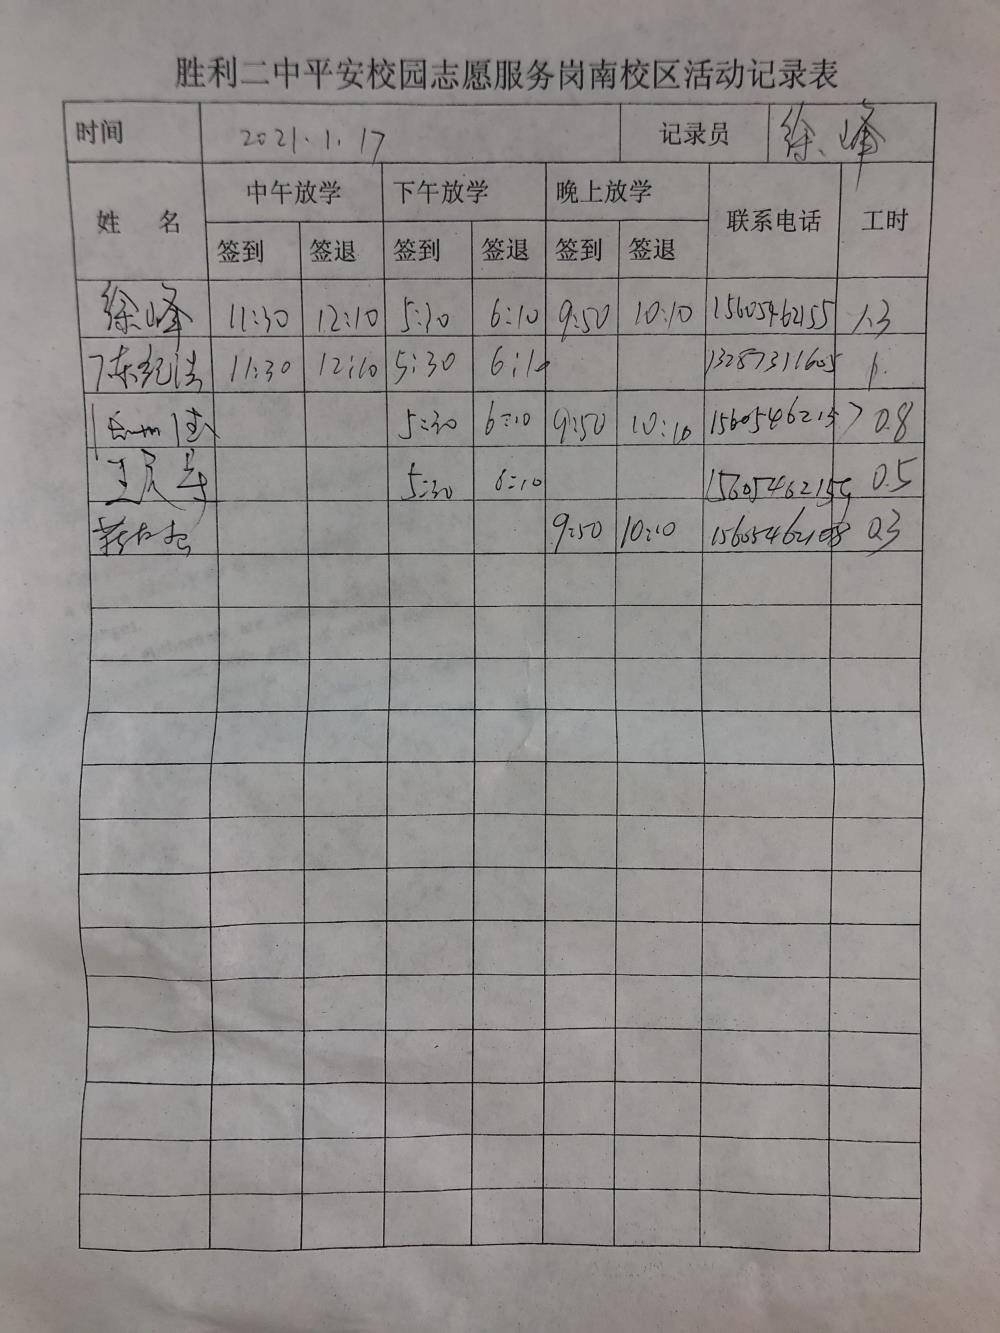 胜利二中平安校园志愿服务岗南校区活动记录表
时间 2021.1.17 记录员 徐峰
姓 名 中午放学 下午放学 晚上放学 联系电话 工时
签到 签退 签到 签退 签到 签退
徐峰 11:30 12:10 5:30 6:10 9:50 10:10 15605462155 1.3
陈纪浩 11:30 12:10 5:30 6:10 13287311605 1.
5:30 6:10 9:50 10:10 0.8
5:30 6:10 15605462159 0.5
9:50 10:10 0.3